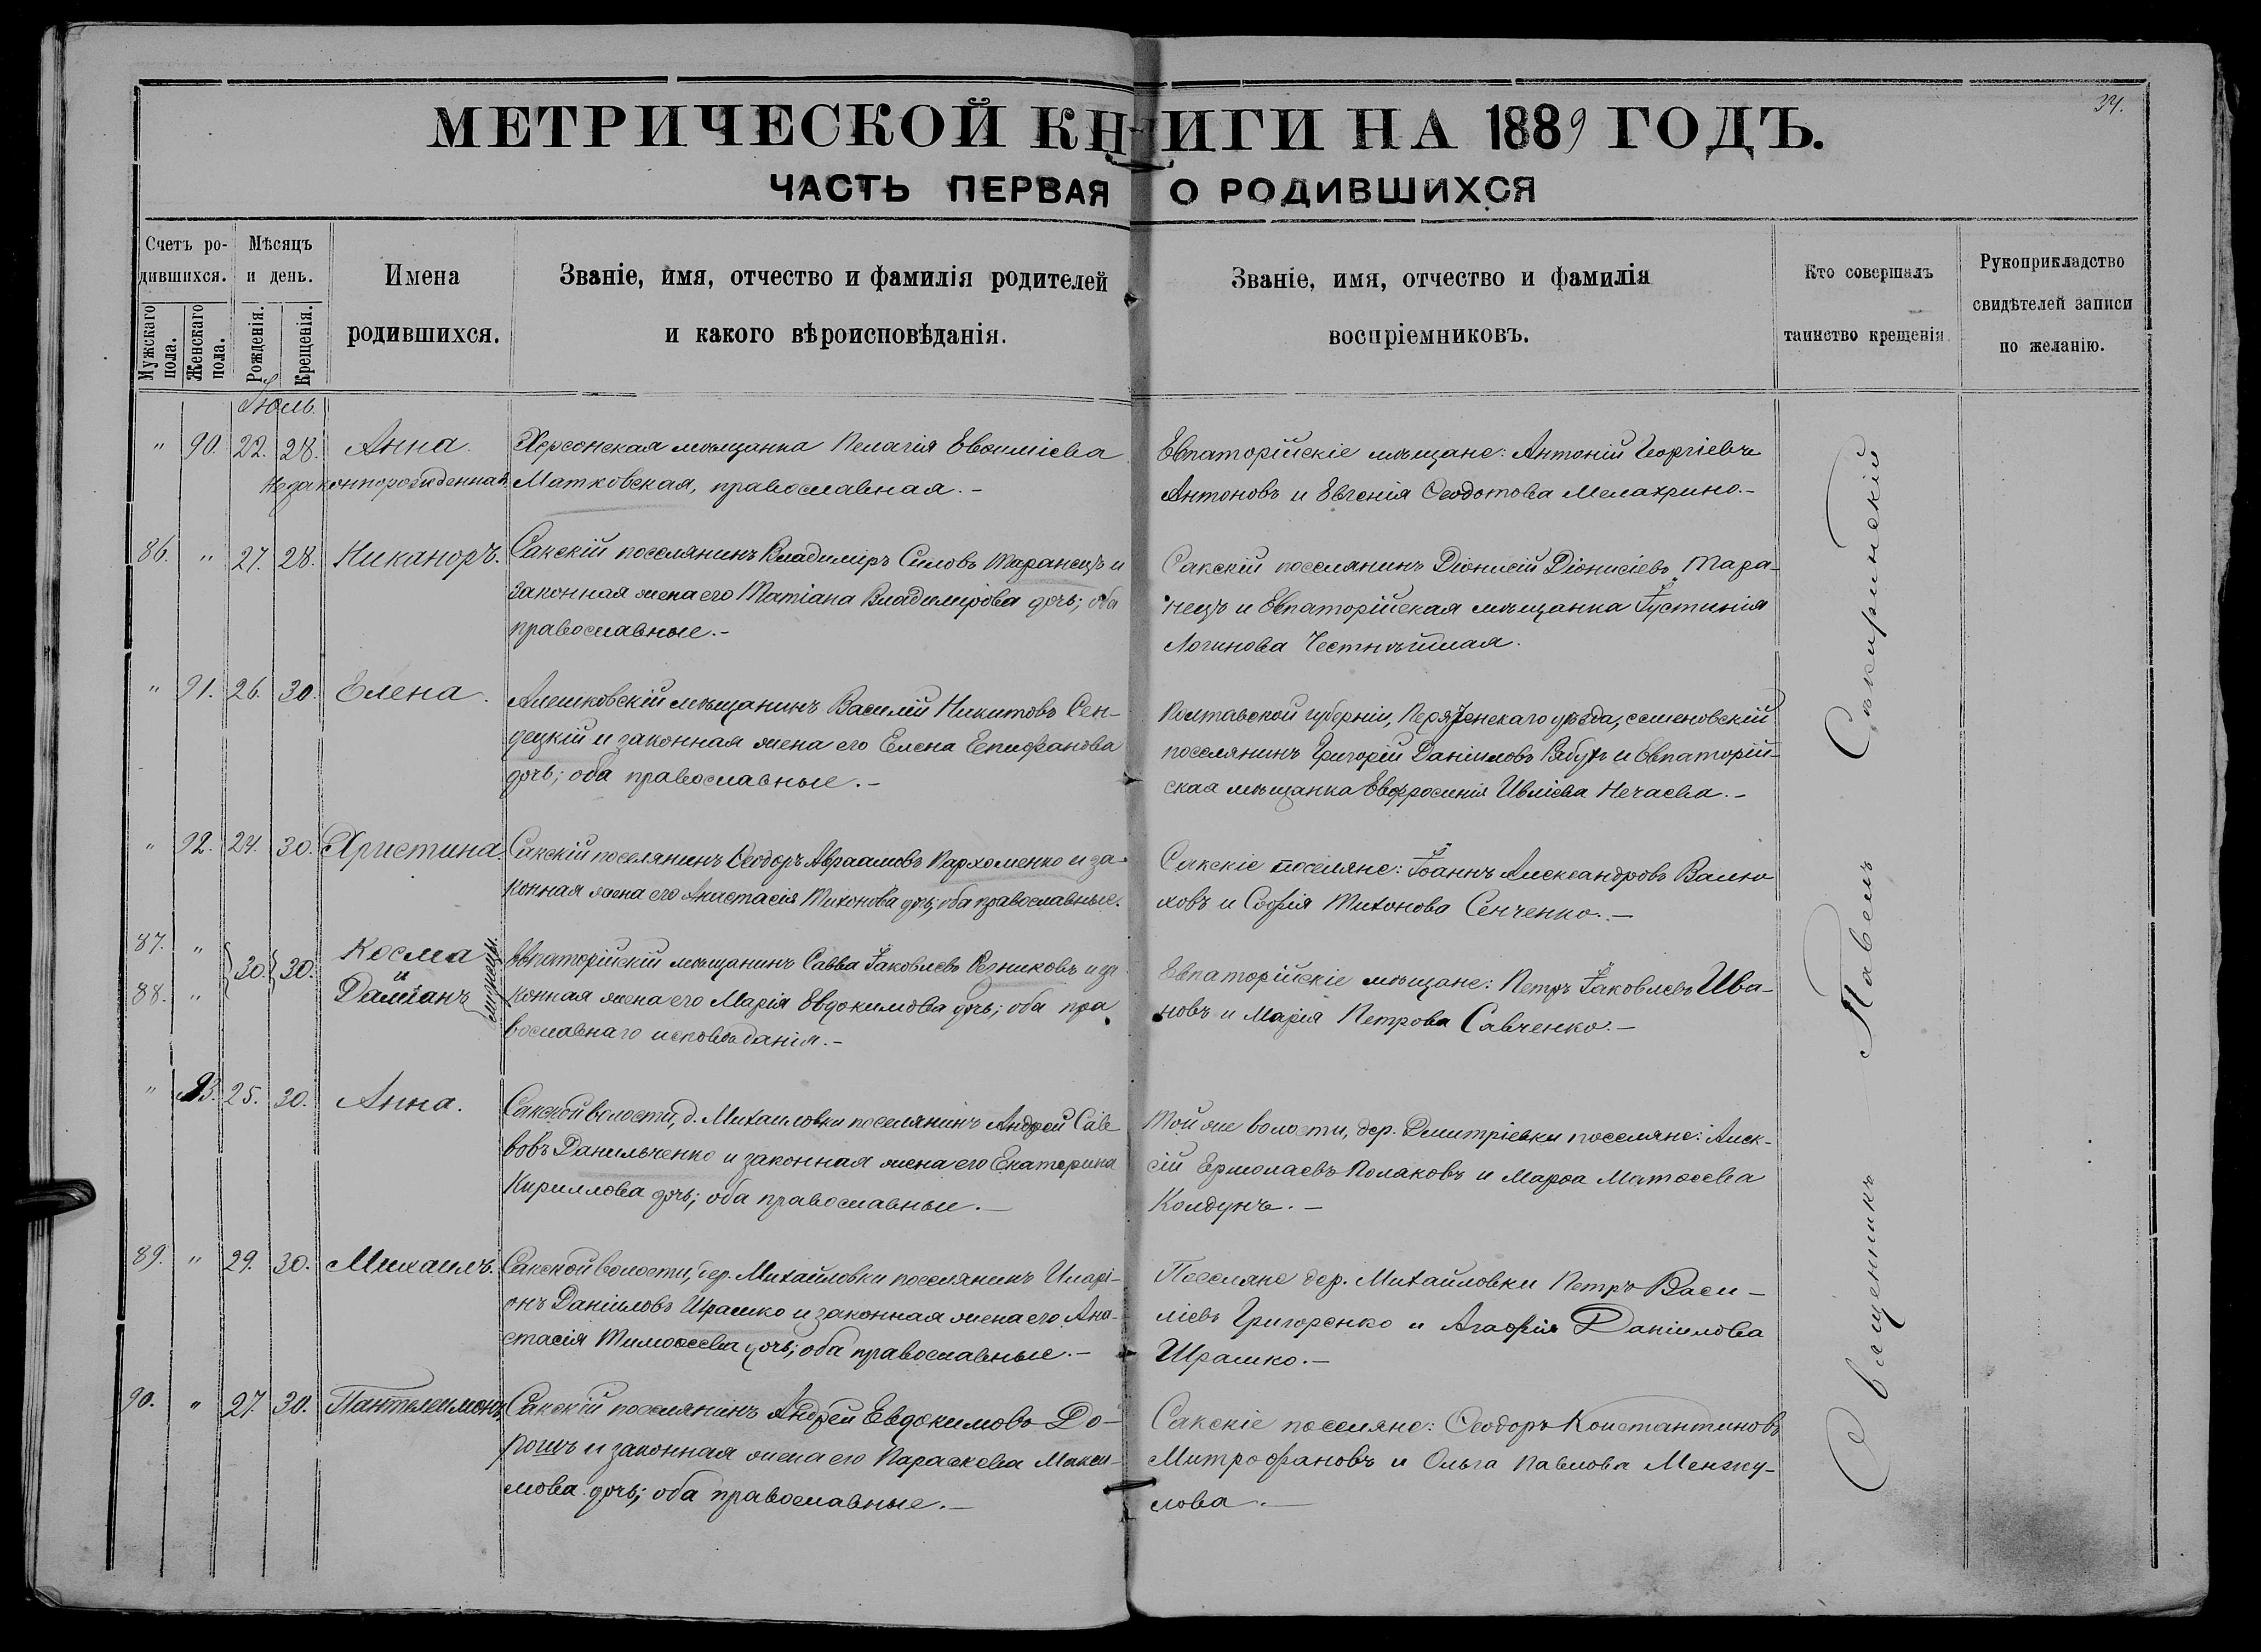 34.
МЕТРИЧЕСКОЙ КНИГИ НА 1889 ГОДЪ.
ЧАСТЬ ПЕРВАЯ О РОДИВШИХСЯ
Счетъ ро-
дившихся.
Мужскаго пола.
Женскаго пола.
Мѣсяцъ
и день.
Рожденія.
Крещенія.
Имена
родившихся.
Званіе, имя, отчество и фамилія родителей
и какого вѣроисповѣданія.
Званіе, имя, отчество и фамилія
воспріемниковъ.
Кто совершалъ
таинство крещенія
Рукоприкладство
свидѣтелей записи
по желанію.
Іюль.
" 90. 22. 28. Анна.
незаконнорожденная.
Херсонская мѣщанка Пелагія Евѳиміева
Матковская, православная.-
Евпаторійскіе мѣщане: Антоній Георгіевъ
Антоновъ и Евгенія Ѳеодотова Мелахрино.-
86. " 27. 28. Никаноръ.
Сакскій поселянинъ Владиміръ Силовъ Таранецъ и
законная жена его Татіана Владимірова дочь; оба
православные.-
Сакскій поселянинъ Діонисій Діонисіевъ Тара-
нецъ и Евпаторійская мѣщанка Іустинія
Логинова Честнѣйшая.
" 91. 26. 30. Елена.
Алешковскій мѣщанинъ Василій Никитовъ Сен-
децкій и законная жена его Елена Епифанова
дочь; оба православные.-
Полтавской губерніи, уѣзда, семеновскій
поселянинъ Григорій Даніиловъ и Евпаторій-
ская мѣщанка Евфросинія Ивліева Нечаева.-
" 92. 24. 30. Христина.
Сакскій поселянинъ Ѳеодоръ Авраамовъ Пархоменко и за-
конная жена его Анастасія Тихонова дочь; оба православные.
Сакскіе поселяне: Іоаннъ Александровъ Валю
ховъ и Софія Тихонова Сенченко.-
87. " 30. 30. Косма
и
88. " Даміанъ
близнецы.
Евпаторійскій мѣщанинъ Савва Іаковлевъ Резниковъ и за
конная жена его Марія Евдокимова дочь; оба пра
вославнаго исповѣданія.-
Евпаторійскіе мѣщане: Петръ Іаковлевъ Ива-
новъ и Марія Петрова Савченко.-
" 93. 25. 30. Анна.
Сакской волости, д. Михаиловки поселянинъ Андрей Сав
вовъ Данильченко и законная жена его Екатерина
Кириллова дочь; оба православные.-
Той же волости, дер. Дмитріевки поселяне: Алек-
сій Ермолаевъ Полаковъ и Марѳа Матѳеева
Колдунъ.-
89. " 29. 30. Михаилъ.
Сакской волости, дер. Михайловки поселянинъ Иларі-
онъ Даніиловъ Ирашко и законная жена его Ана-
стасія Тимоѳеева дочь; оба православные.-
Поселяне дер. Михайловки Петръ Васи-
ліевъ Григоренко и Агафія Даніилова
Ирашко.-
90. " 27. 30. Пантелеимонъ
Сакскій поселянинъ Андрей Евдокимовъ До-
рошъ и законная жена его Параскева Макси-
мова дочь; оба православные.-
Сакскіе поселяне: Ѳеодоръ Константиновъ
Митрофановъ и Ольга Павлова Менжу-
лова.-
Священникъ Павелъ Сокиринскій